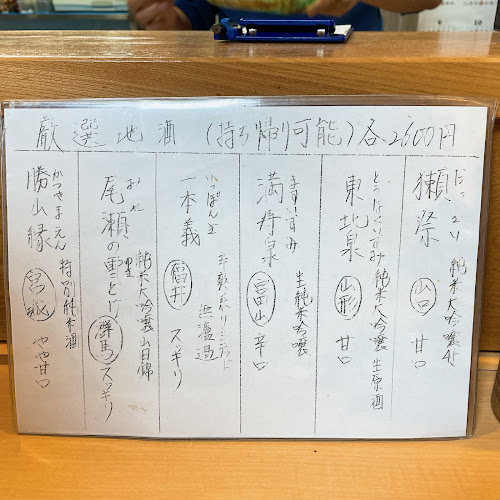 厳選地酒(持ち帰り可能)各2500円
だっさい
獺祭
純米大吟醸45
山口
甘口
とうほくいずみ
東北泉
純米大吟醸生原酒
山形
甘口
ますいずみ
満寿泉
生純米吟醸
富山
辛口
いっぽんぎ
一本義
無濾過
福井
スッキリ
おぜ
尾瀬の雪どけ
純米大吟醸山田錦
群馬
スッキリ
かつやまえん
勝山縁
特別純米酒
宮城
やや甘口